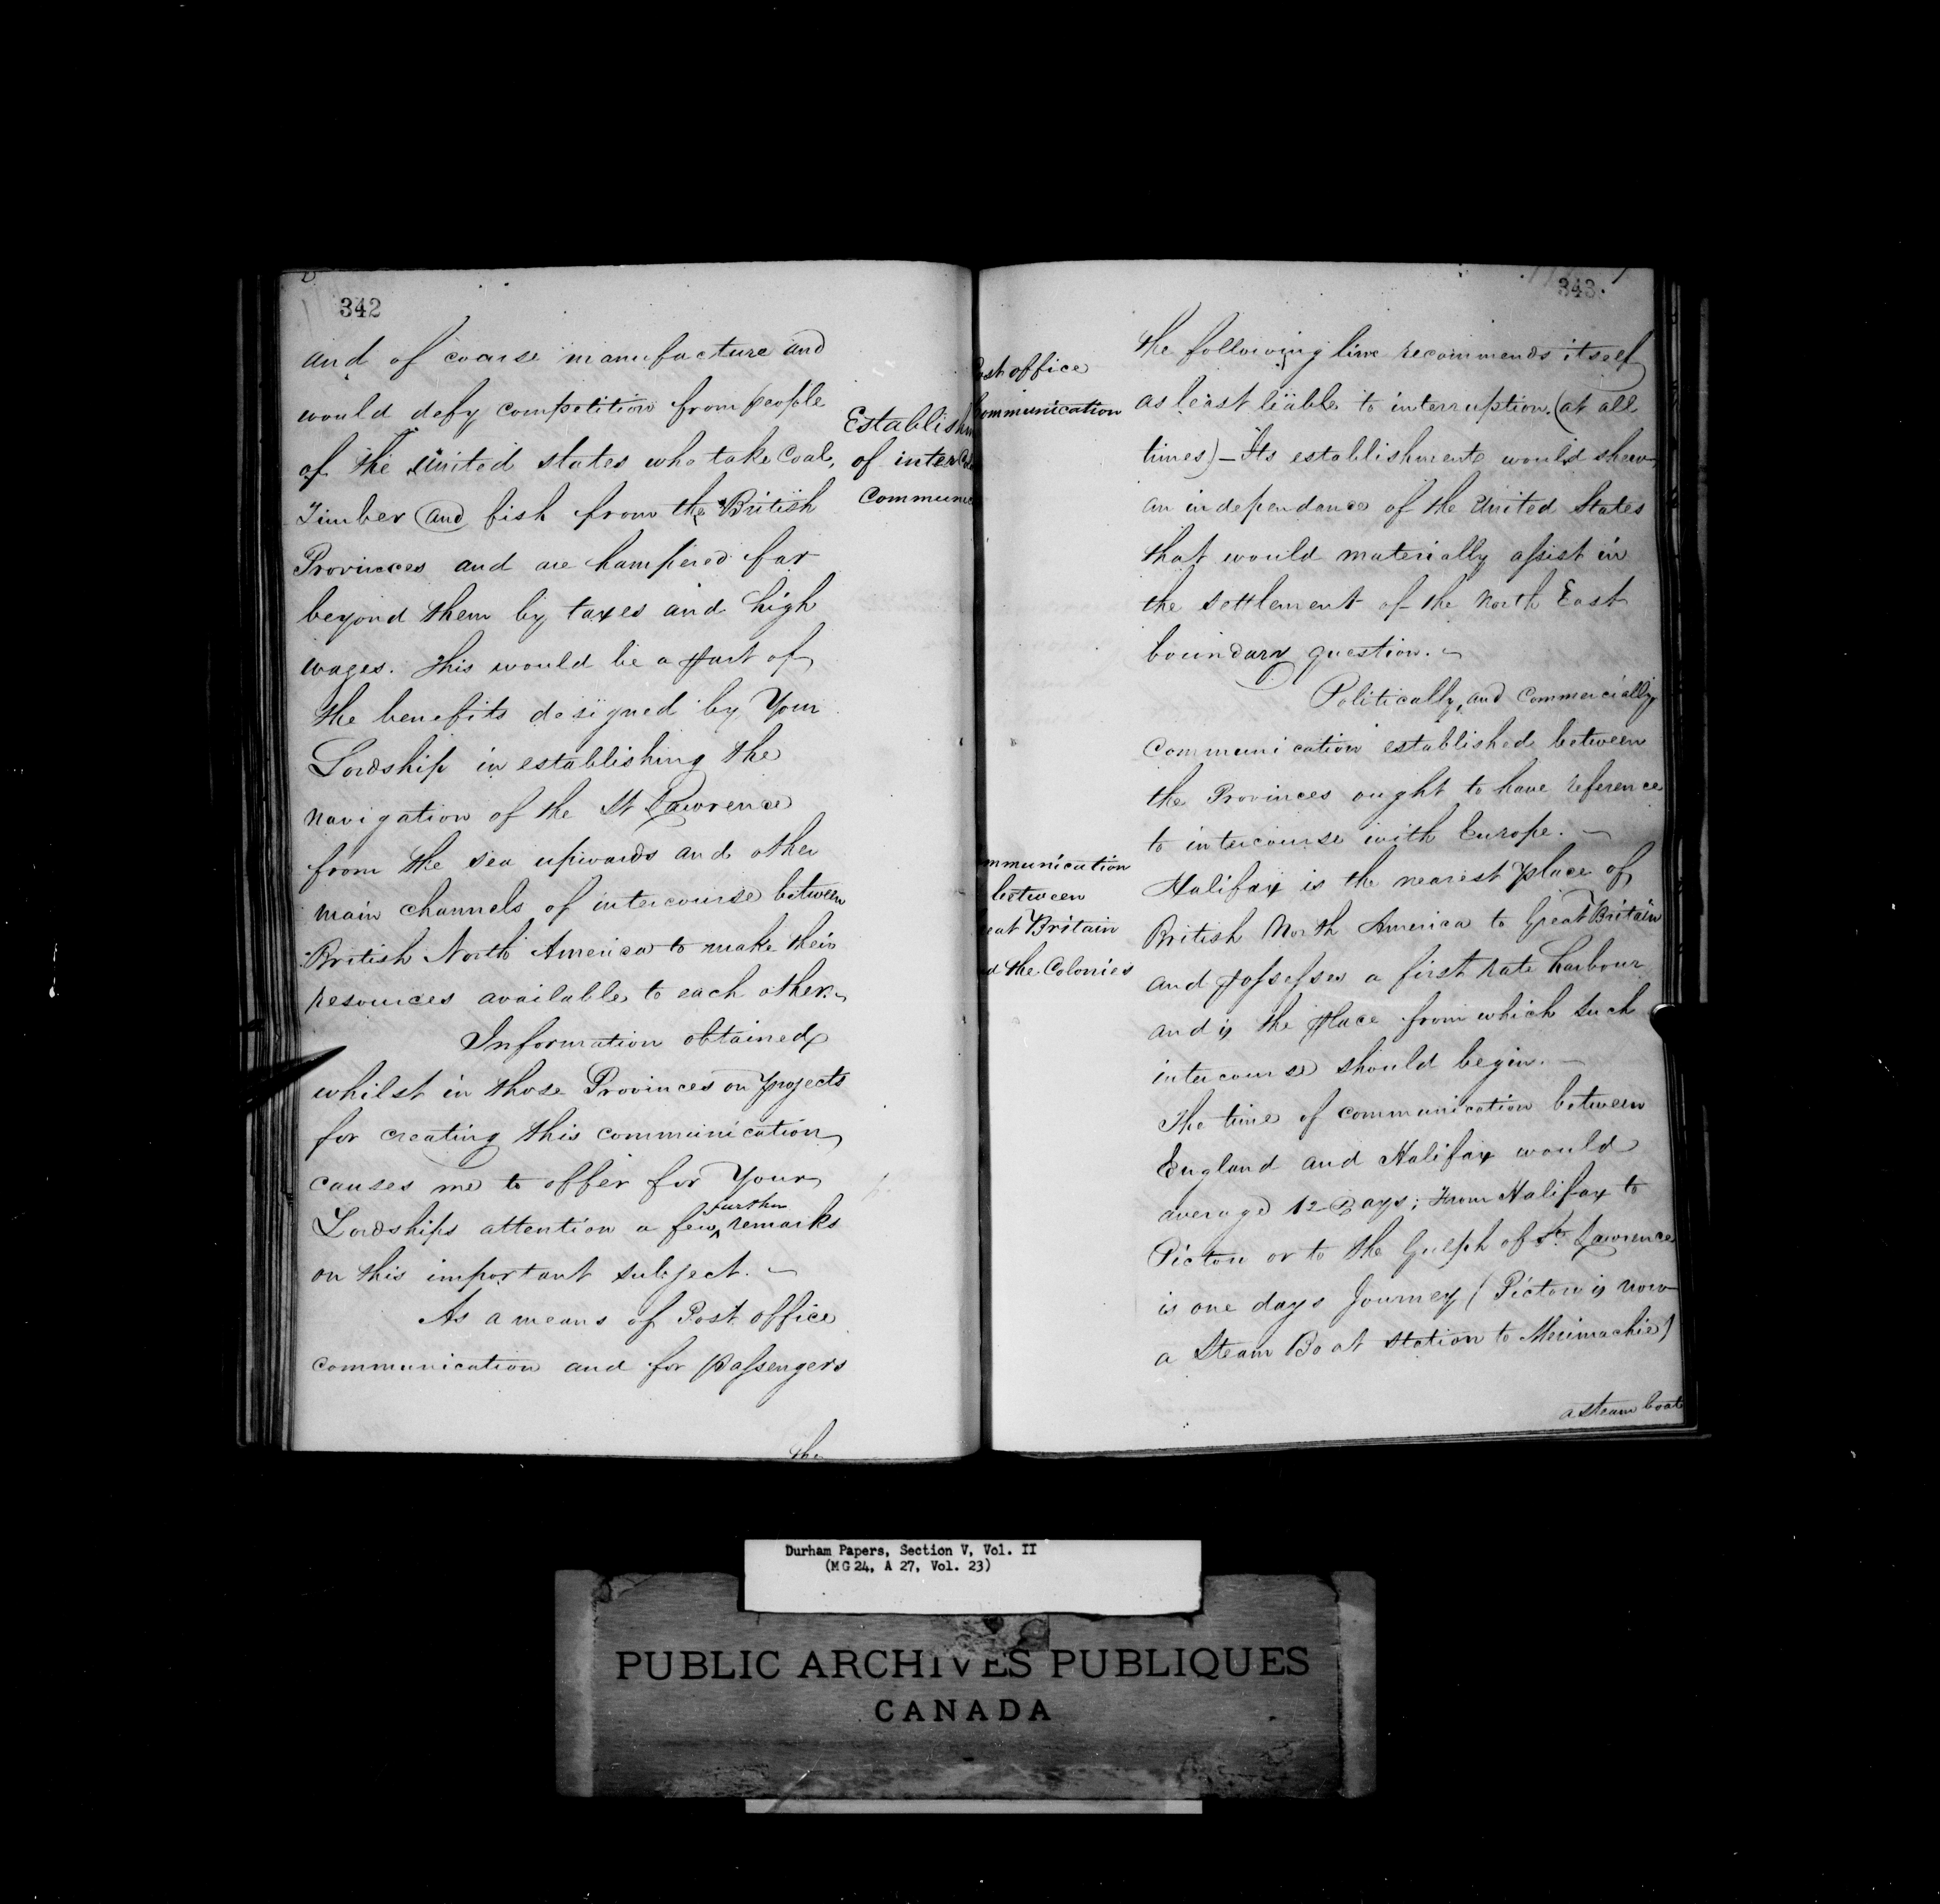 342
and of coarse manufacture and
would defy competition from people
of the United states who take Coal,
Timber and fish from the British
Provinces and are hampered far
beyond them by taxes and high
wages. This would be a part of
the benefits designed by Your
Lordship in establishing the
navigation of the St Lawrence
from the sea upwards and other
main channels of intercourse between
British North America to make their
resources available to each other.
Information obtained
whilst in those Provinces on projects
for creating this communication
causes me to offer for Your
Lordships attention a few further remarks
on this important subject.
As a means of Post office
communication and for passengers
the
Establishm
of inter Co
Communi
343.
ost office
ommunication
mmunication
between
eat Britain
d the Colonies
the following line recommends itself
as least liable to interruption. (at all
times) - Its establishment would shew
an independance of the United States
that would materially assist in
the settlement of the North East
boundary question.
Politically, and Commercially
Communication established between
the Provinces ought to have reference
to intercourse with Europe.
Halifax is the nearest place of
British North America to Great Britain
and possesses a first rate harbour
and is the place from which such
intercourse should begin.
The time of communication between
England and Halifax would
average 12 Days; From Halifax to
Picton or to the Gulph of St. Lawrence
is one days Journey (Picton is now
a Steam Boat station to Merimachie)
a steam boat
Durham Papers, Section V, Vol. II
(MG 24, A 27, Vol. 23)
PUBLIC ARCHIVES PUBLIQUES
CANADA